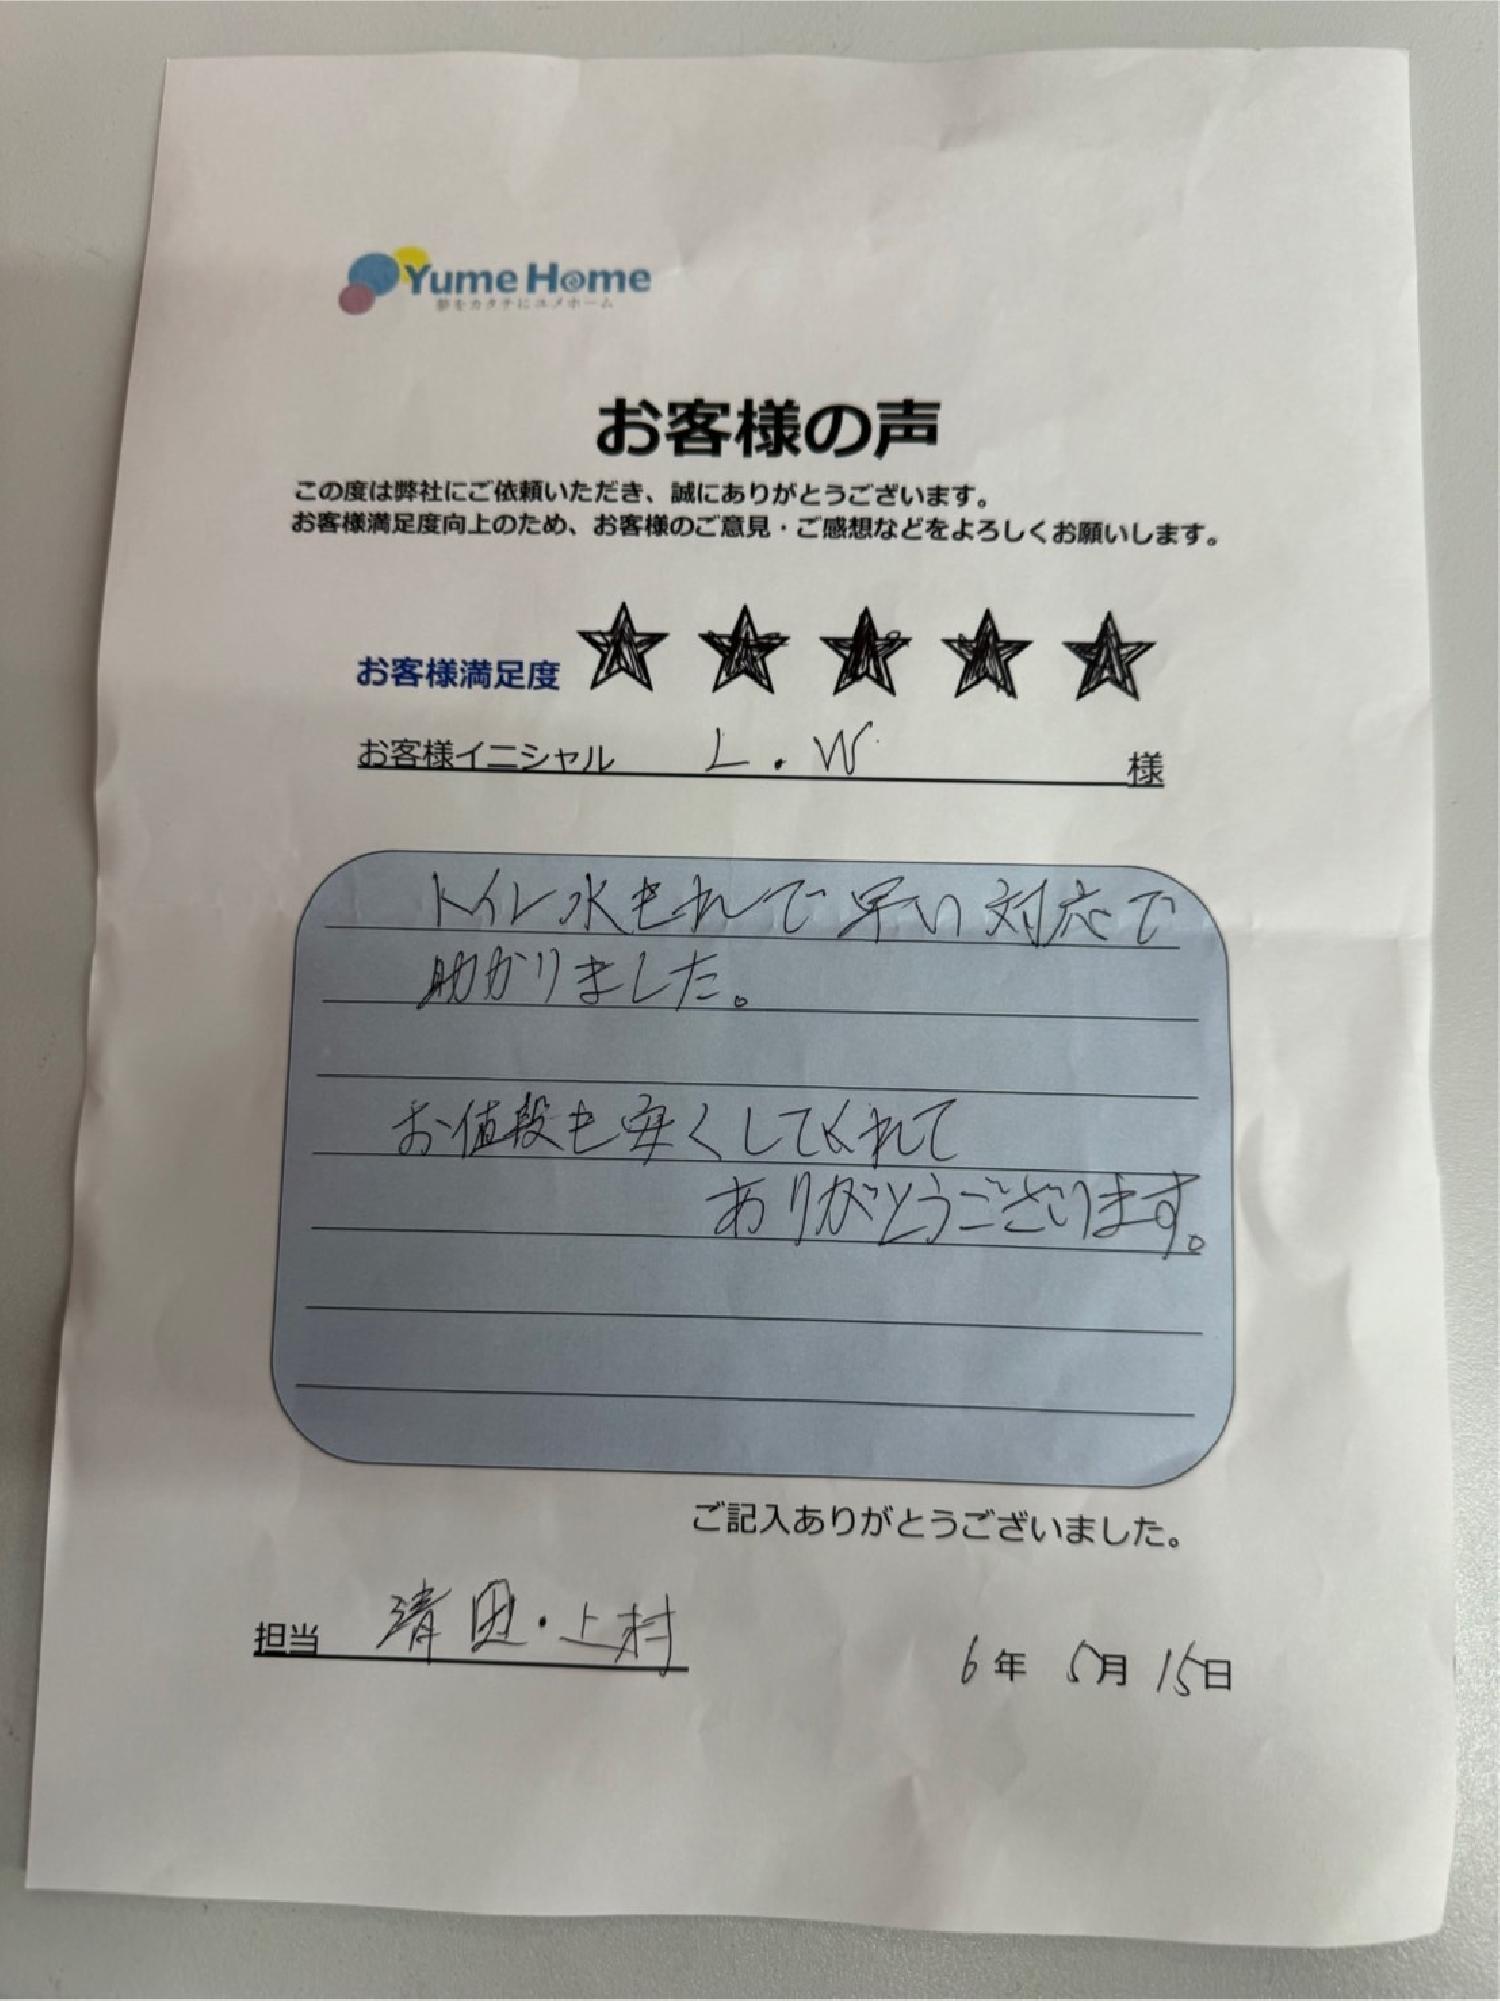 Yume Home
夢をカタチにユメホーム
お客様の声
この度は弊社にご依頼いただき、誠にありがとうございます。
お客様満足度向上のため、お客様のご意見・ご感想などをよろしくお願いします。
お客様満足度 ★ ★ ★ ★ ★
お客様イニシャル L.W 様
トイレ水もれで早い対応で
助かりました。
お値段も安くしてくれて
ありがとうございます。
ご記入ありがとうございました。
担当 清田・上村
6年 5月 15日